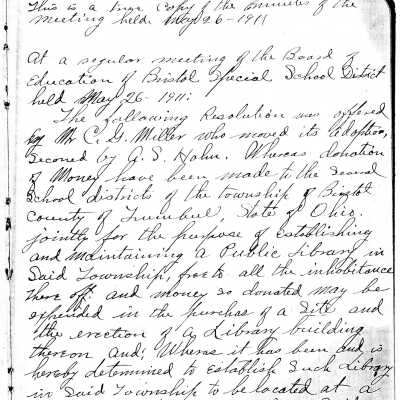 This is a true Copy of the minutes of the
meeting held. May 26-1911
At a regular meeting of the Board of
Education of Bristol Special School District
held May 26-1911:
The following Resolution was offered
by Mr C. G. Miller who moved its Adoption,
Second by A. S. Hahn. Whereas donation
of Money have been made to the Several
School districts of the township of Bristol
County of Trumbull, State of Ohio.
jointly for the purpose of establishing
and maintaining a Public Library in
Said Township, free to all the inhabitance
there off: and money so donated may be
expended in the purchas of a Site and
the erection of a Library building
thereon and: Wheras it has been and is
hereby determined to Establish Such Library
in Said Township to be located at a